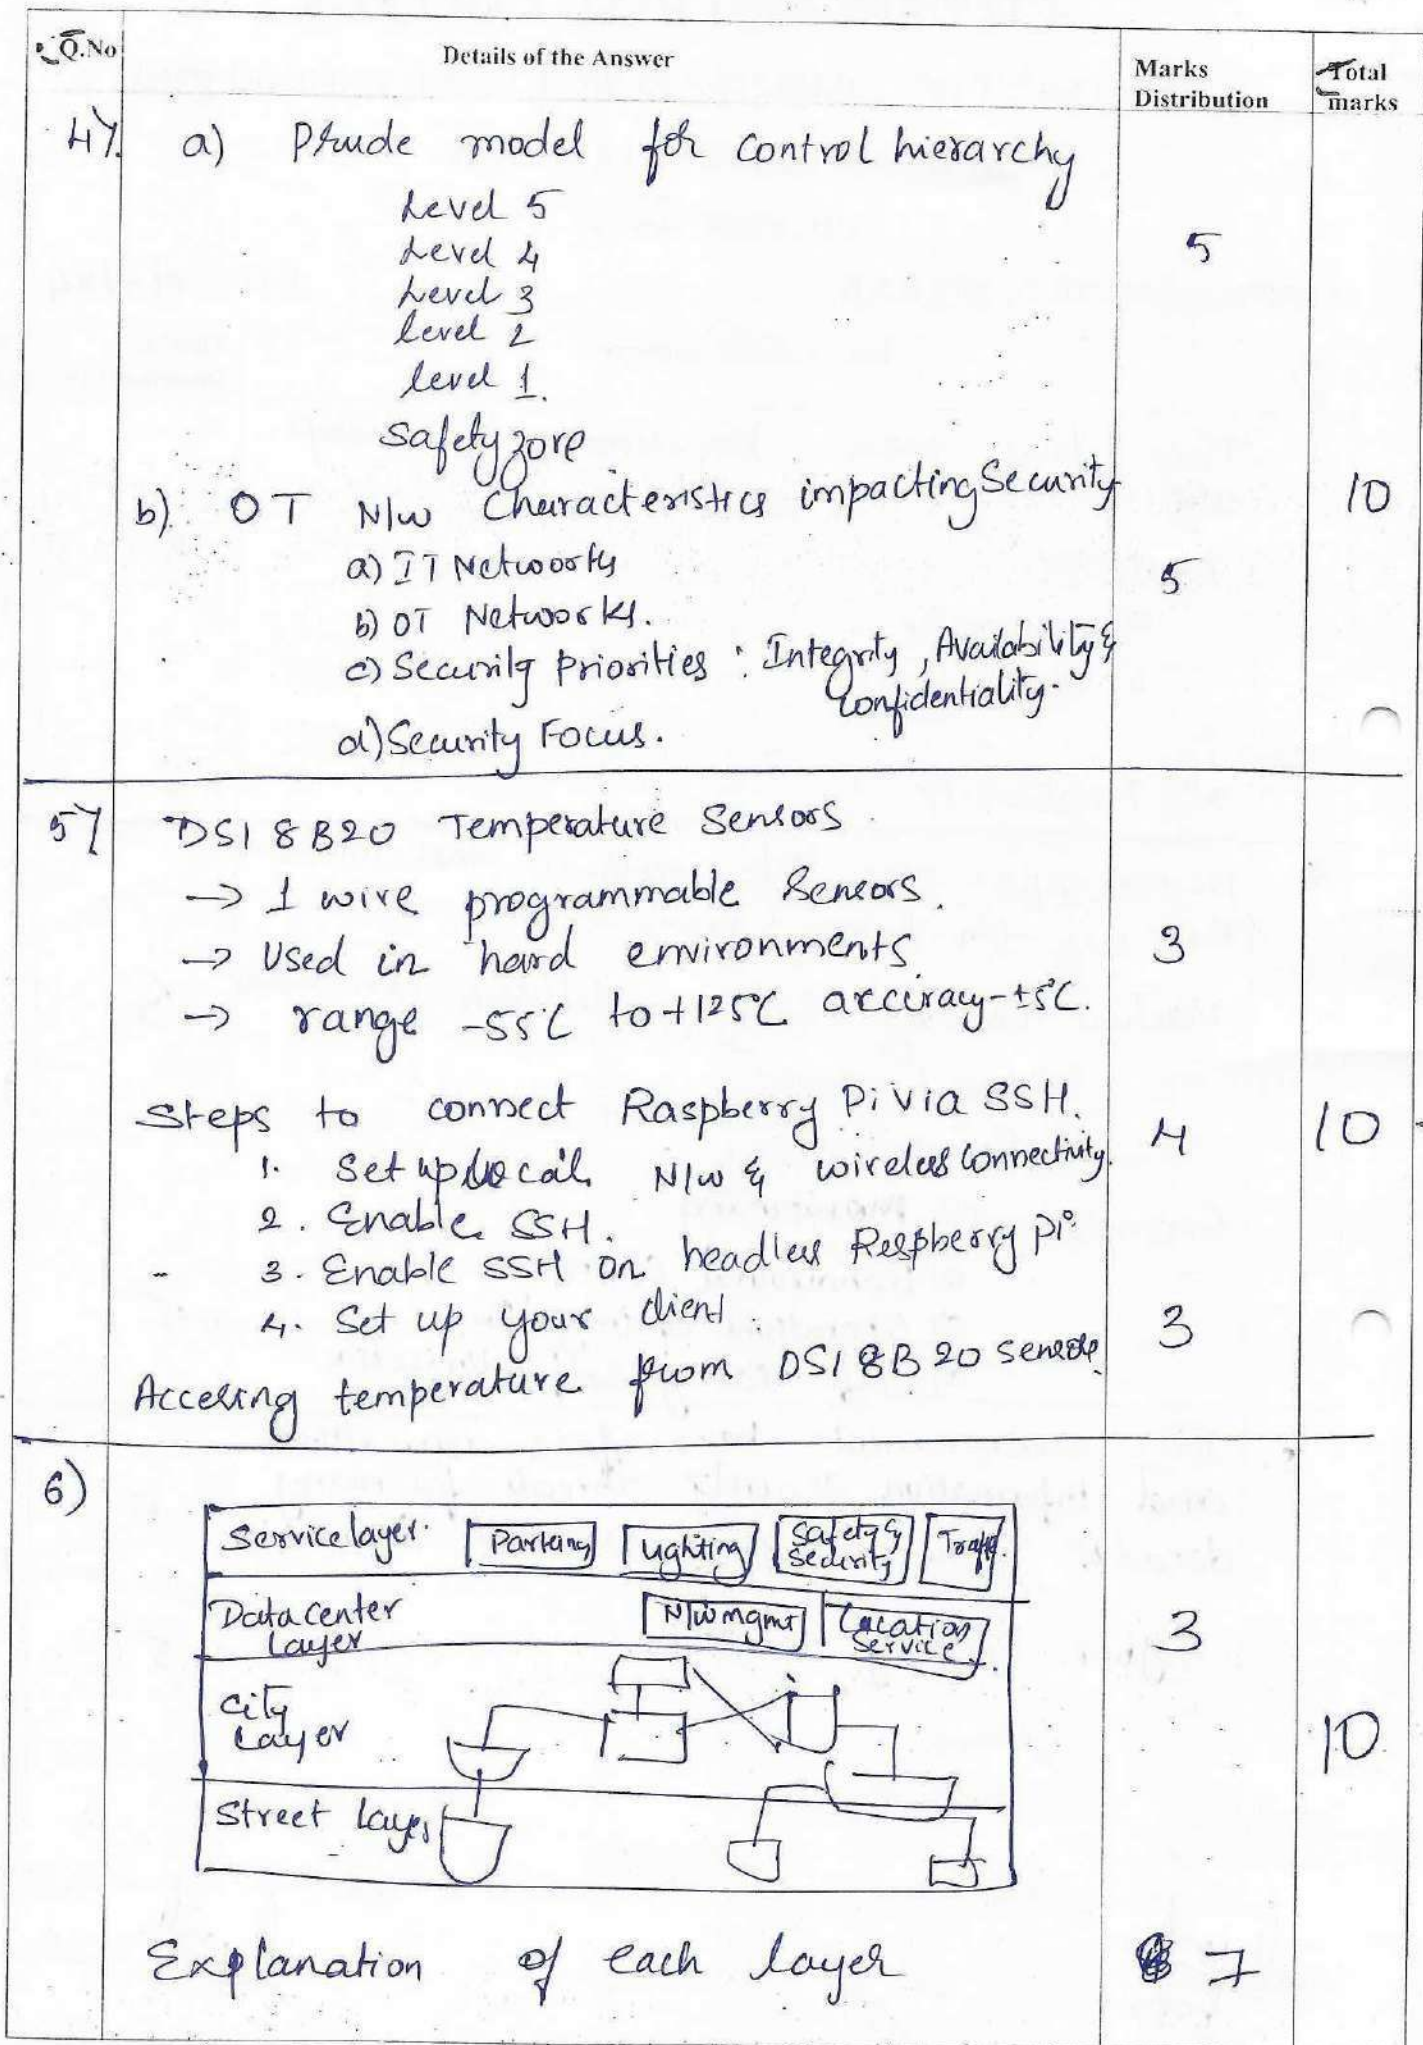 Q.No Details of the Answer Marks Distribution Total marks
4). a) Prude model for control hierarchy
Level 5
Level 4 5
Level 3
level 2
level 1.
Safety zone
b) OT N/w Characteristics impacting Security 10
a) IT Networks 5
b) OT Networks.
c) Security Priorities : Integrity, Availability &
confidentiality.
d) Security Focus.
5) DS18B20 Temperature Sensors
→ 1 wire programmable Sensors.
→ Used in hard environments 3
→ range -55°C to +125°C accuracy - ±5°C.
Steps to connect Raspberry Pi via SSH. 4 10
1. Set up local N/w & wireless connectivity.
2. Enable SSH.
3. Enable SSH on headless Respberry Pi
4. Set up your client. 3
Accesing temperature from DS18B20 sensor
6)
Service layer. Parking Lighting Safety & Security Traffic.
Data center Layer N/w mgmt Location Service 3
City Layer 10
Street Layer
Explanation of each layer 7